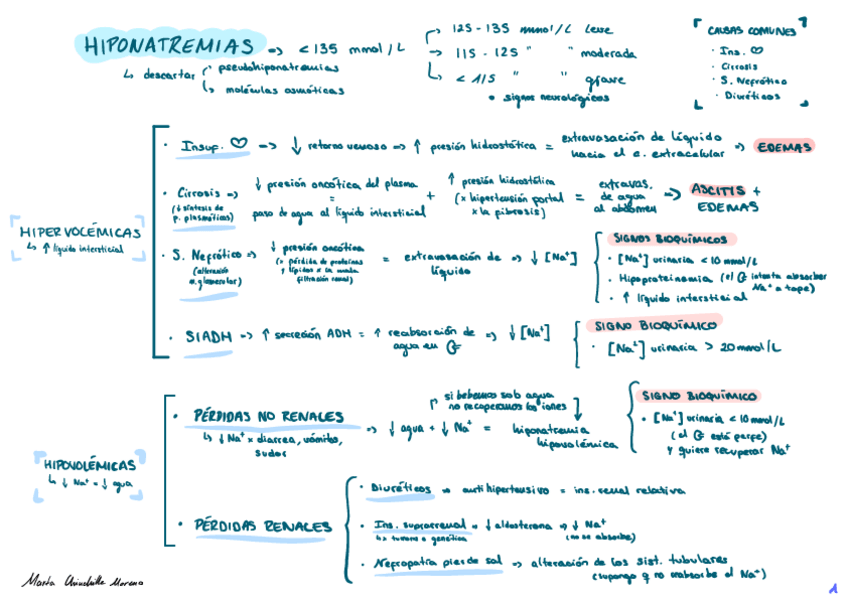 HIPONATREMIAS => < 135 mmol/L
↳ descartar
pseudohiponatremias
moléculas osmóticas
125 - 135 mmol/L leve
115 - 125 " " moderada
< 115 " " grave
• signos neurológicos
CAUSAS COMUNES
· Ins. ♡
· Cirrosis
· S. Nefrótico
· Diuréticos
HIPERVOLÉMICAS
↳ ↑ líquido intersticial
· Insuf. ♡ => ↓ retorno venoso => ↑ presión hidrostática = extravasación de líquido
hacia el e. extracelular => EDEMAS
· Cirrosis =>
(↓ síntesis de
p. plasmáticas)
↓ presión oncótica del plasma
=
paso de agua al líquido intersticial
+
↑ presión hidrostática
(x hipertensión portal
x la fibrosis)
= extravas.
de agua
al abdomen
=> ASCITIS +
EDEMAS
· S. Nefrótico =>
(alteración
glomerular)
↓ presión oncótica
(> pérdida de proteínas
y lípidos x la
filtración renal)
= extravasación de
líquido
=> ↓ [Na⁺]
SIGNOS BIOQUÍMICOS
· [Na⁺] urinaria < 10 mmol/L
· Hipoproteinemia (el intenta absorber
Na⁺ a tope)
· ↑ líquido intersticial
· SIADH => ↑ secreción ADH = ↑ reabsorción de
agua en => ↓ [Na⁺]
SIGNO BIOQUÍMICO
· [Na⁺] urinaria > 20 mmol/L
HIPOVOLÉMICAS
↳ ↓ Na⁺ = ↓ agua
· PÉRDIDAS NO RENALES
↳ ↓ Na⁺ x diarrea, vómitos,
sudor
=> ↓ agua + ↓ Na⁺ = hiponatremia
hipovolémica
si bebemos sob agua
no recuperamos los iones
SIGNO BIOQUÍMICO
· [Na⁺] urinaria < 10 mmol/L
(el está perfe)
y quiere recuperar Na⁺
· PÉRDIDAS RENALES
· Diuréticos => antihipertensivo = ins. renal relativa
· Ins. suprarrenal => ↓ aldosterona => ↓ Na⁺
↳ tumor o genética
(no se absorbe)
· Nefropatía pierde sal => alteración de los sist. tubulares
(supongo q no reabsorbe el Na⁺)
Marta Moreno
1